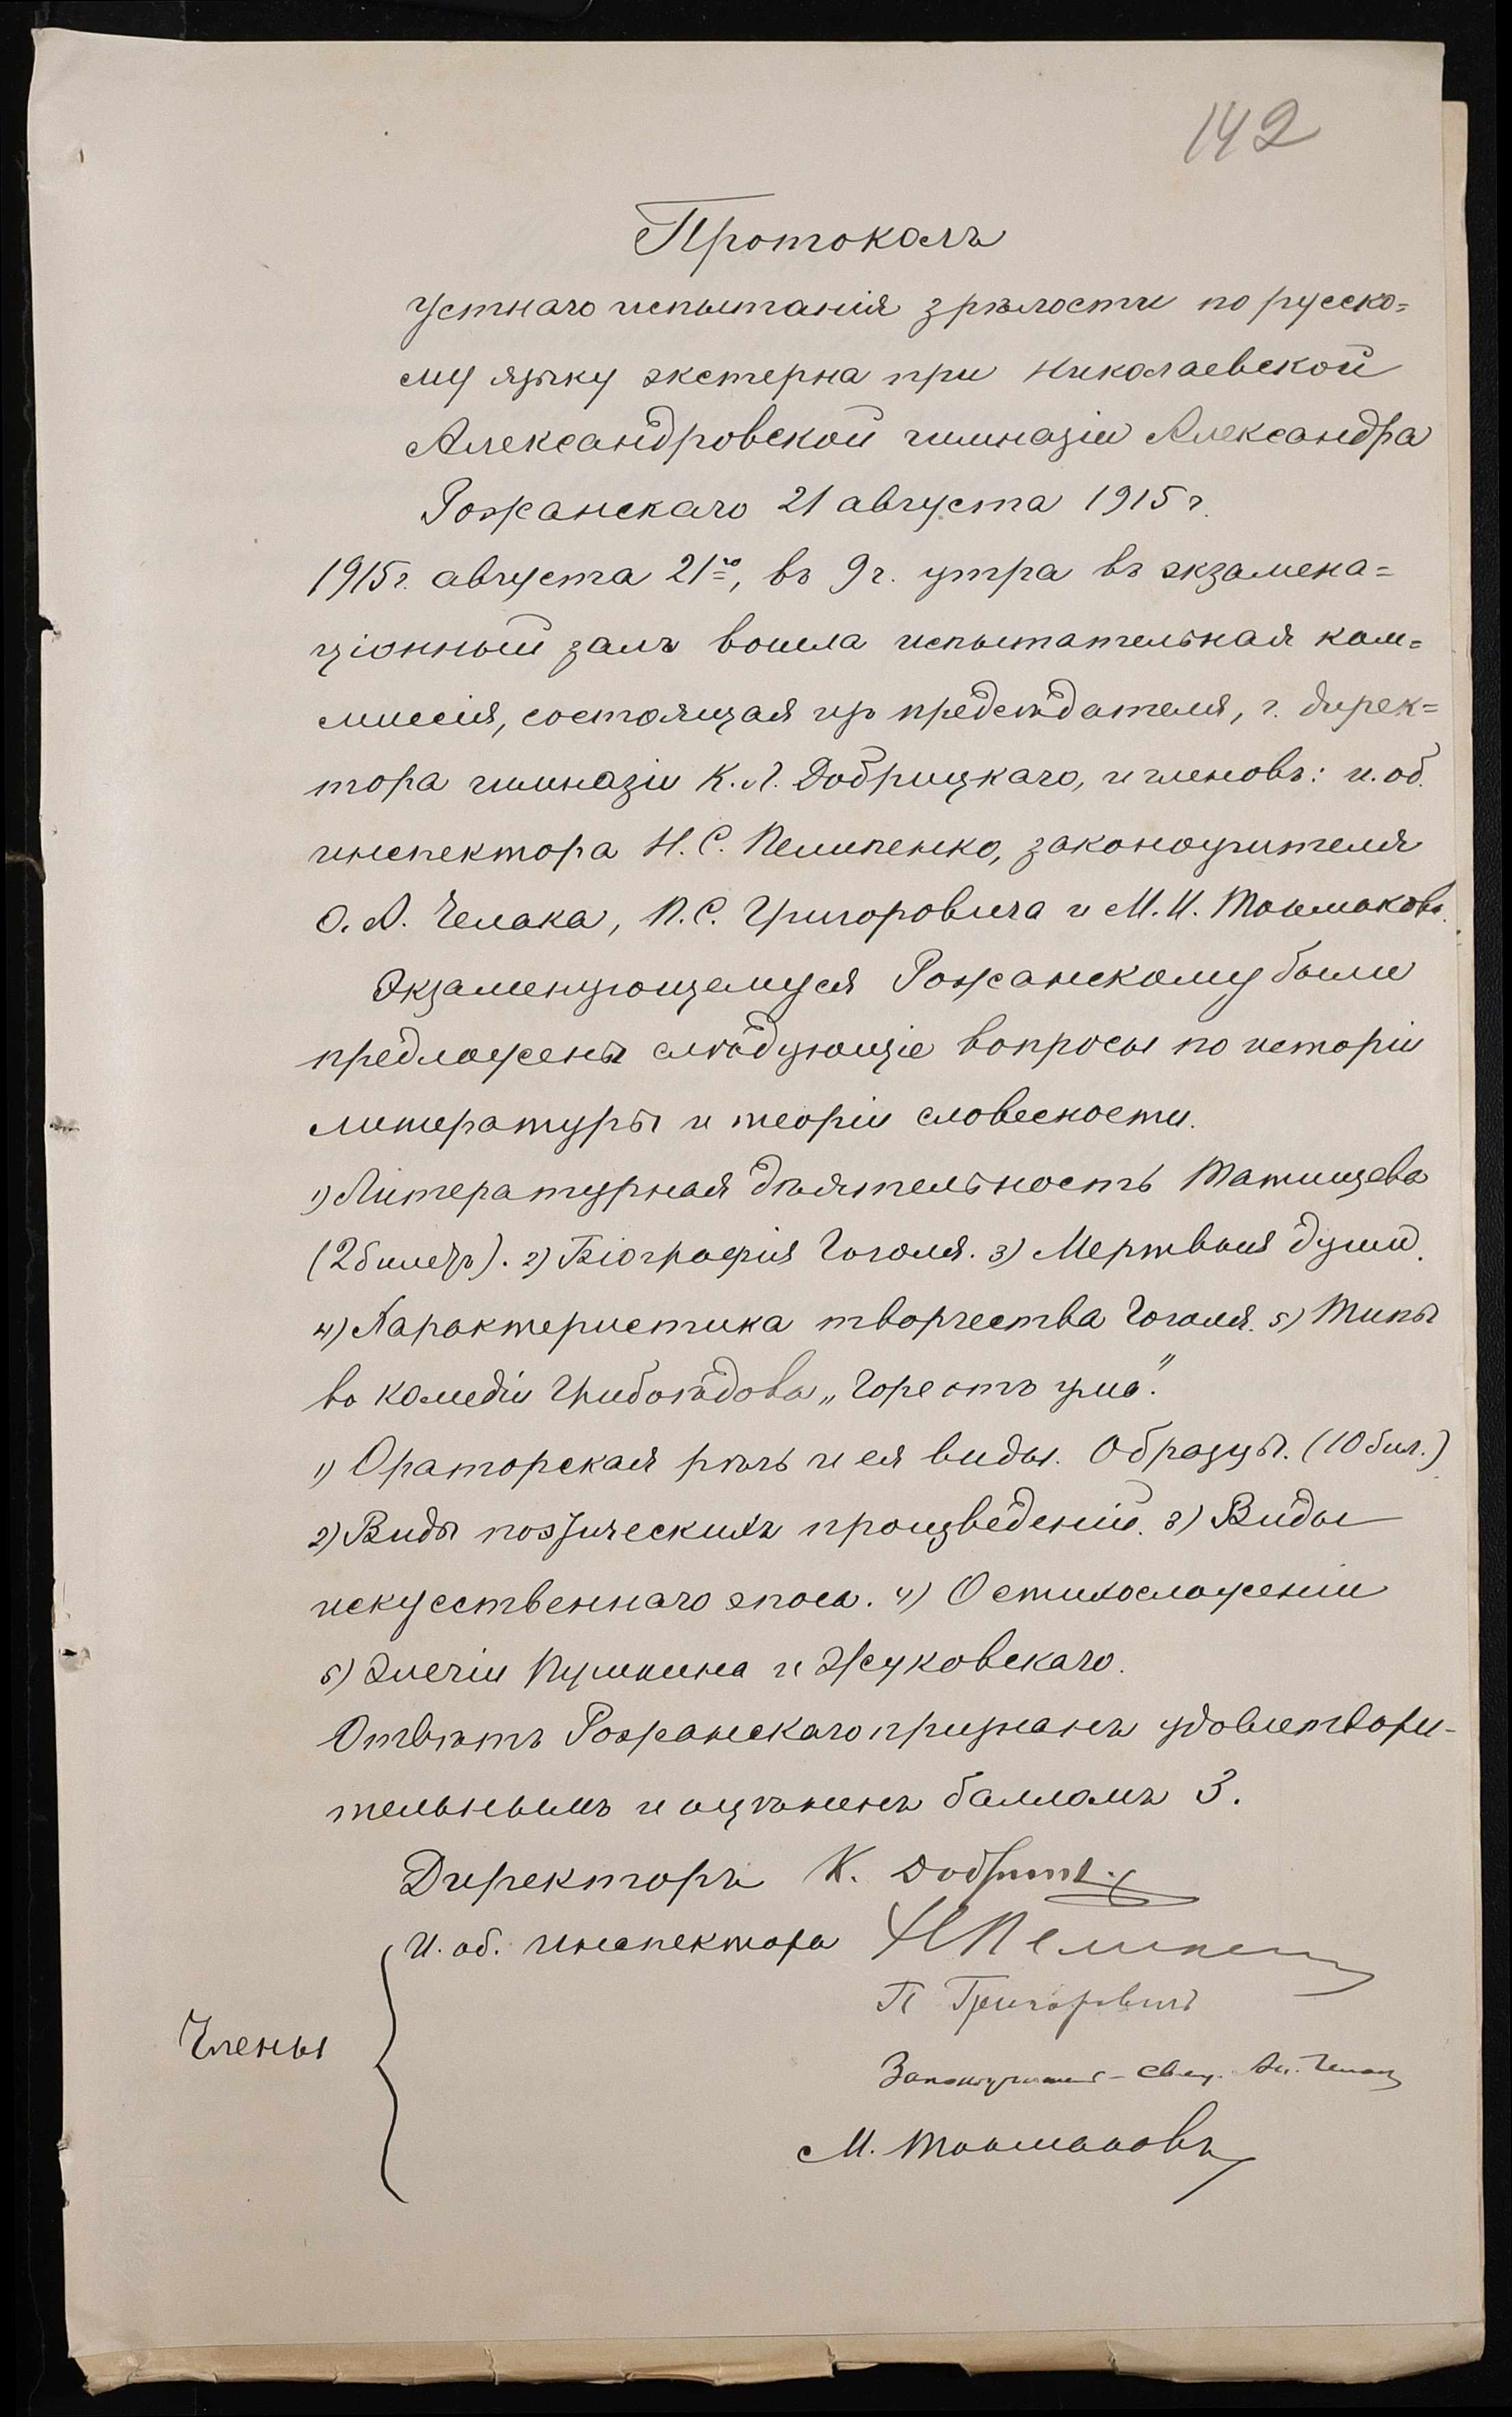 142
Протоколъ
устнаго испытанія зрѣлости по русско=
му языку экстерна при Николаевской
Александровской гимназіи Александра
Рожанскаго 21 августа 1915 г.
1915 г. августа 21го, въ 9 ч. утра въ экзамена=
ціонный залъ вошла испытательная ком=
миссія, состоящая изъ предсѣдателя, г. дирек=
тора гимназіи К. Л. Добрицкаго, и членовъ: и. об.
инспектора Н. С. Пелипенко, законоучителя
о. А. Чемака, П. С. Григоровича и М. И. Токмаковъ.
Экзаменующемуся Рожанскому были
предложены слѣдующіе вопросы по исторіи
литературы и теоріи словесности.
1) Литературная дѣятельность Татищева
(2 билетъ). 2) Біографія Гоголя. 3) Мертвыя души.
4) Характеристика творчества Гоголя. 5) Типы
въ комедіи Грибоѣдова „Горе отъ ума".
1) Ораторская рѣчь и ея виды. Образцы. (10 бил.)
2) Виды поэтическихъ произведеній. 3) Виды
искусственнаго эпоса. 4) О стихосложеніи
5) Элегіи Пушкина и Жуковскаго.
Отвѣтъ Рожанскаго признанъ удовлетвори-
тельнымъ и оцѣненъ балломъ 3.
Директоръ К. Добриц
И. об. инспектора Н Пелипен
П Григоровичъ
Члены
Законоучитель - свящ. Ал. Чемак
М. Токмаковъ